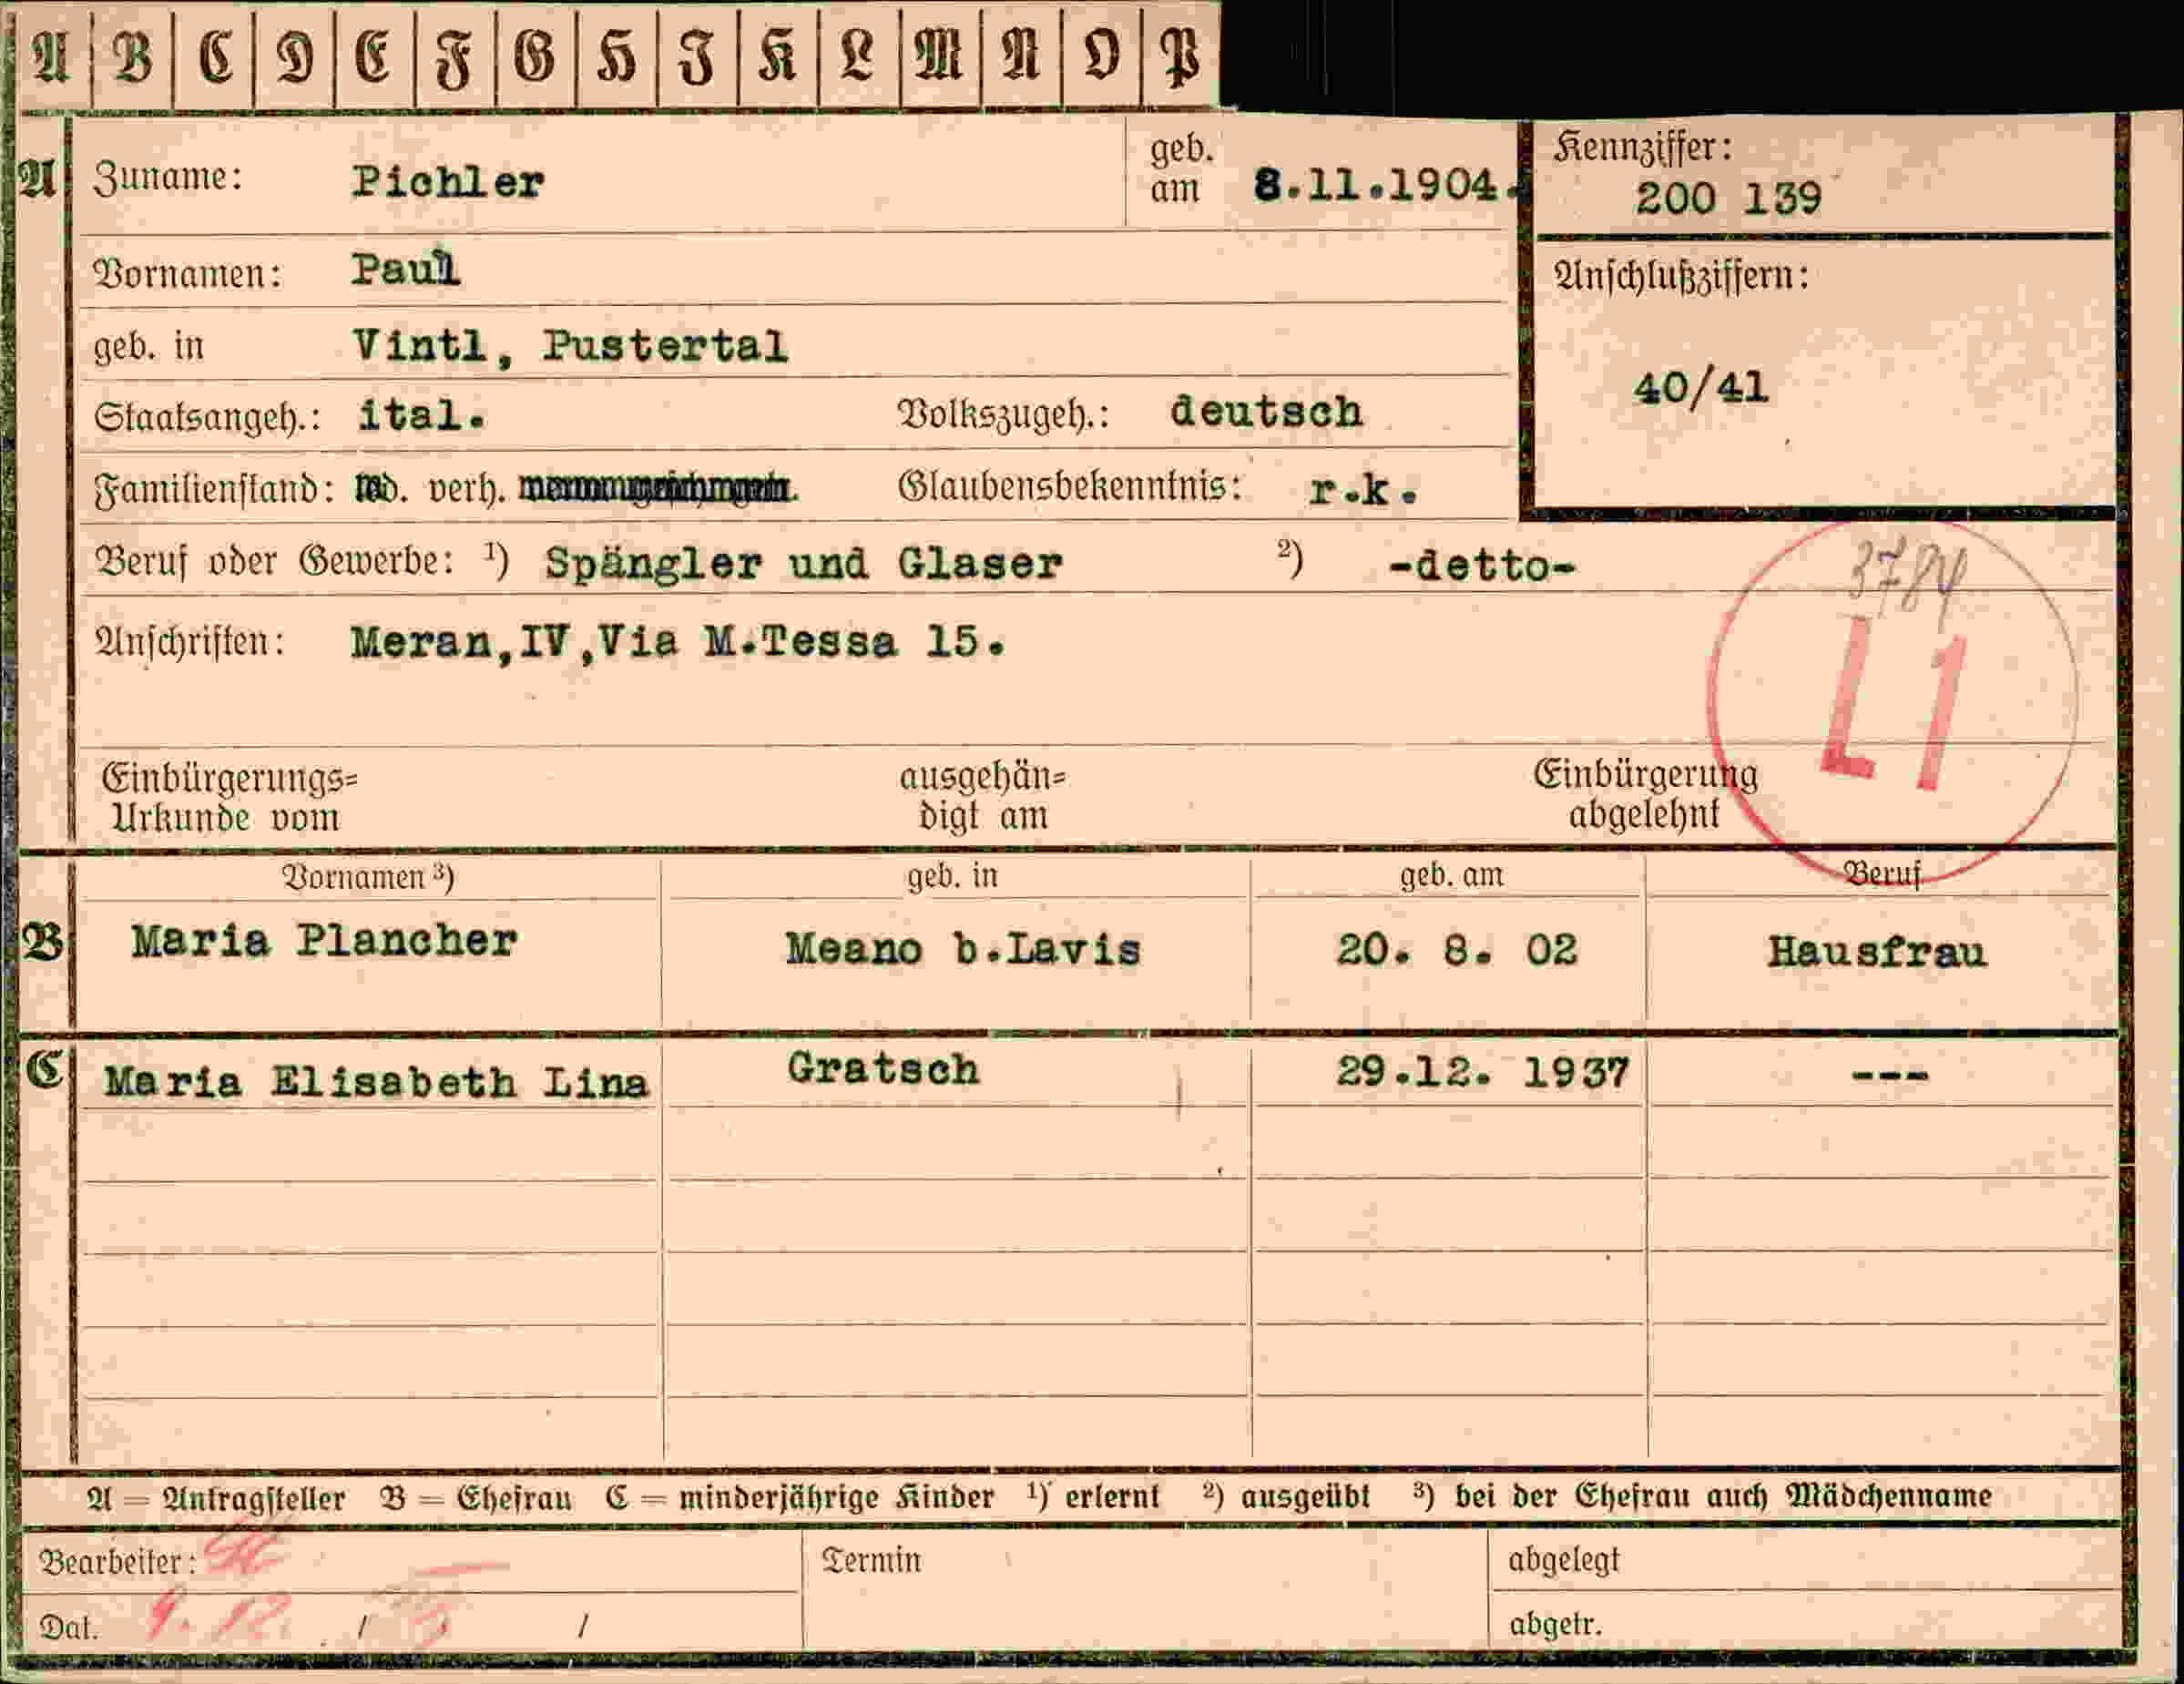 A B C D E F G H I K L M N O P
A Zuname: Pichler geb. am 8.11.1904.
Kennziffer: 200 139
Vornamen: Paul
Anschlußziffern: 40/41
geb. in Vintl, Pustertal
Staatsangeh.: ital. Volkszugeh.: deutsch
Familienstand: verh. Glaubensbekenntnis: r.k.
Beruf oder Gewerbe: ¹) Spängler und Glaser ²) -detto-
3784
Anschriften: Meran,IV,Via M.Tessa 15.
L 1
Einbürgerungs= ausgehän= Einbürgerung
Urkunde vom digt am abgelehnt
Vornamen ³) geb. in geb. am Beruf
B Maria Plancher Meano b.Lavis 20. 8. 02 Hausfrau
C Maria Elisabeth Lina Gratsch 29.12. 1937 ---
A = Antragsteller B = Ehefrau C = minderjährige Kinder ¹) erlernt ²) ausgeübt ³) bei der Ehefrau auch Mädchenname
Bearbeiter: Termin abgelegt
Dat. 9. 12. / / abgetr.